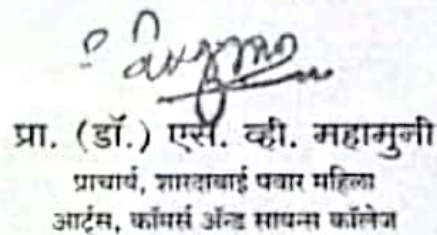 प्रा. (डॉ.) एस. व्ही. महामुनी
प्राचार्य, शारदाबाई पवार महिला
आर्ट्स, कॉमर्स अ‍ॅन्ड सायन्स कॉलेज